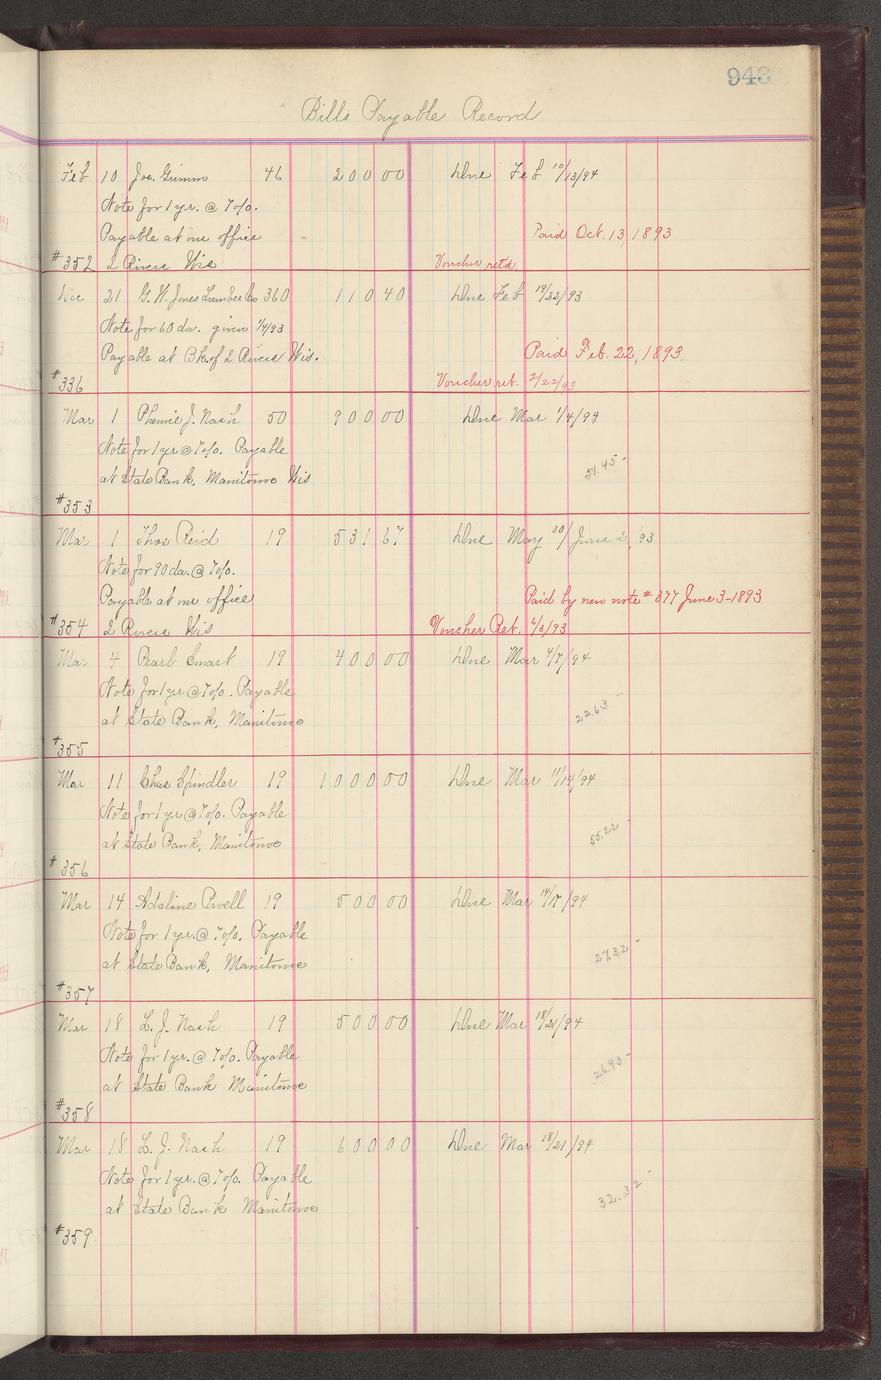 943
Bills Payable Record
Feb 10 Jos. Grimm 46 200 00 Due Feb 10/13/94
Note for 1 yr. @ 7%.
Payable at our office Paid Oct. 13, 1893
#352 2 Rivers Wis Voucher ret'd.
Dec 21 G. W. Jones Lumber Co 360 110 40 Due Feb 19/22/93
Note for 60 da. given 1/4/93
Payable at Bk. of 2 Rivers Wis. Paid Feb. 22, 1893
#336 Voucher ret. 2/22/93
Mar 1 Phemie J. Nash 50 900 00 Due Mar 1/4/94
Note for 1 yr @ 7%. Payable
at State Bank, Manitowoc Wis 51.45-
#353
Mar 1 Thos Reid 19 531 67 Due May 30/June 2, 93
Note for 90 da. @ 7%.
Payable at our office Paid by new note #377 June 3-1893
#354 2 Rivers Wis Voucher Ret. 6/3/93
Mar 4 Pearl Smart 19 400 00 Due Mar 4/7/94
Note for 1 yr @ 7%. Payable
at State Bank, Manitowoc 22.63-
#355
Mar 11 Chas Spindler 19 1000 00 Due Mar 11/14/94
Note for 1 yr @ 7%. Payable
at State Bank, Manitowoc 55.22-
#356
Mar 14 Adaline Powell 19 500 00 Due Mar 14/17/94
Note for 1 yr. @ 7%. Payable
at State Bank, Manitowoc 27.32-
#357
Mar 18 L. J. Nash 19 500 00 Due Mar 18/21/94
Note for 1 yr. @ 7%. Payable
at State Bank Manitowoc 26.93-
#358
Mar 18 L. J. Nash 19 600 00 Due Mar 18/21/94
Note for 1 yr. @ 7%. Payable
at State Bank Manitowoc 32.32-
#359